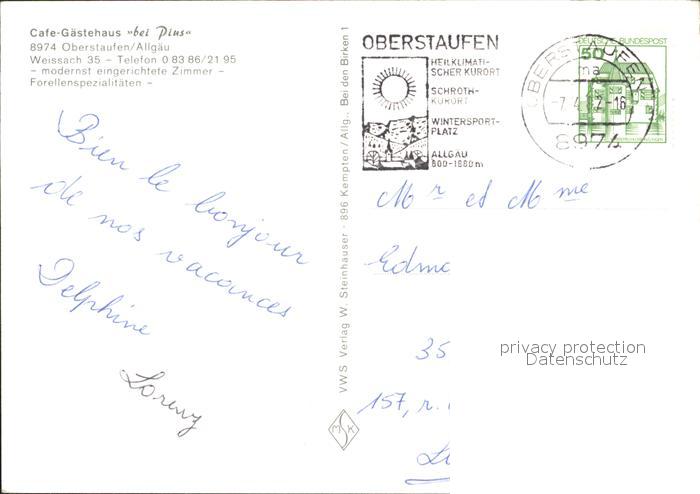 Cafe-Gästehaus »bei Pius«
8974 Oberstaufen/Allgäu
Weissach 35 – Telefon 0 83 86/21 95
– modernst eingerichtete Zimmer –
Forellenspezialitäten –
Bien le bonjour
de nos vacances
Delphine
VWS Verlag W. Steinhauser · 896 Kempten/Allg., Bei den Birken 1
MSK
OBERSTAUFEN
HEILKLIMATI-
SCHER KURORT
SCHROTH-
KURORT
WINTERSPORT-
PLATZ
ALLGÄU
800-1880m
OBERSTAUFEN
ma
8974
DEUTSCHE BUNDESPOST
50
Mr et Mme
Edmo
35
157, r.
privacy protection
Datenschutz